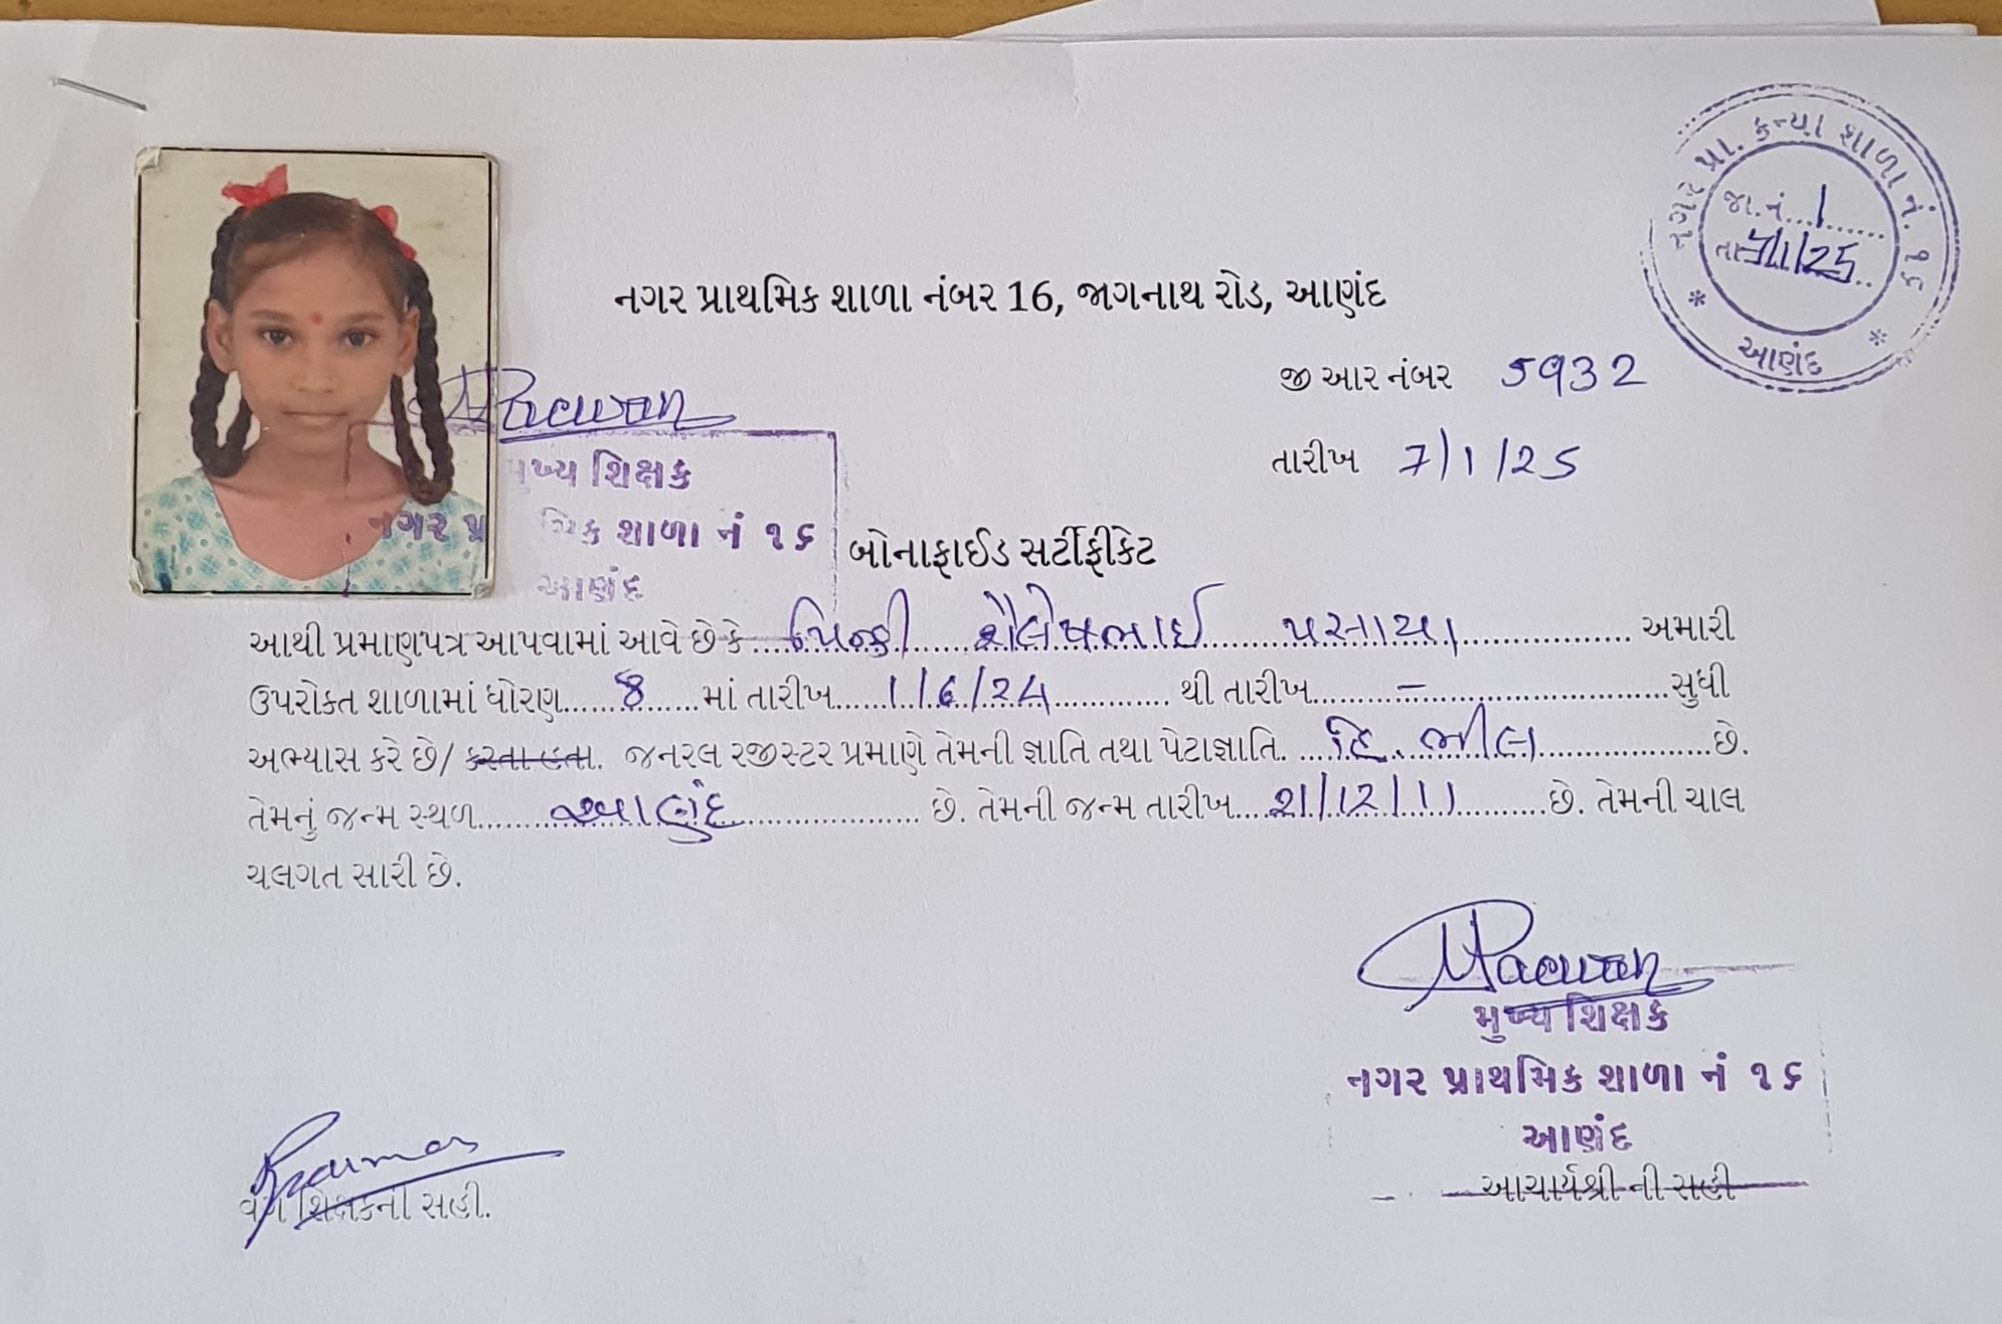 નગર પ્રા. કન્યા શાળા નં. ૧૬
જા.નં...1......
તા 7/1/25..
* આણંદ *
નગર પ્રાથમિક શાળા નંબર 16, જાગનાથ રોડ, આણંદ
જી આર નંબર 5932
તારીખ 7/1/25
Macwan
મુખ્ય શિક્ષક
નગર પ્રા મિક શાળા નં ૧૬
આણંદ
બોનાફાઈડ સર્ટીફીકેટ
આથી પ્રમાણપત્ર આપવામાં આવે છે કે પિન્કી શૈલેષભાઈ અમારી
ઉપરોક્ત શાળામાં ધોરણ 8 માં તારીખ 1/6/24 થી તારીખ - સુધી
અભ્યાસ કરે છે/ કરતા હતા. જનરલ રજીસ્ટર પ્રમાણે તેમની જ્ઞાતિ તથા પેટાજ્ઞાતિ. હિ. ભીલ છે.
તેમનું જન્મ સ્થળ આણંદ છે. તેમની જન્મ તારીખ 21/12/11 છે. તેમની ચાલ
ચલગત સારી છે.
Macwan
મુખ્ય શિક્ષક
નગર પ્રાથમિક શાળા નં ૧૬
આણંદ
આચાર્યશ્રી ની સહી
વર્ગ શિક્ષકની સહી.